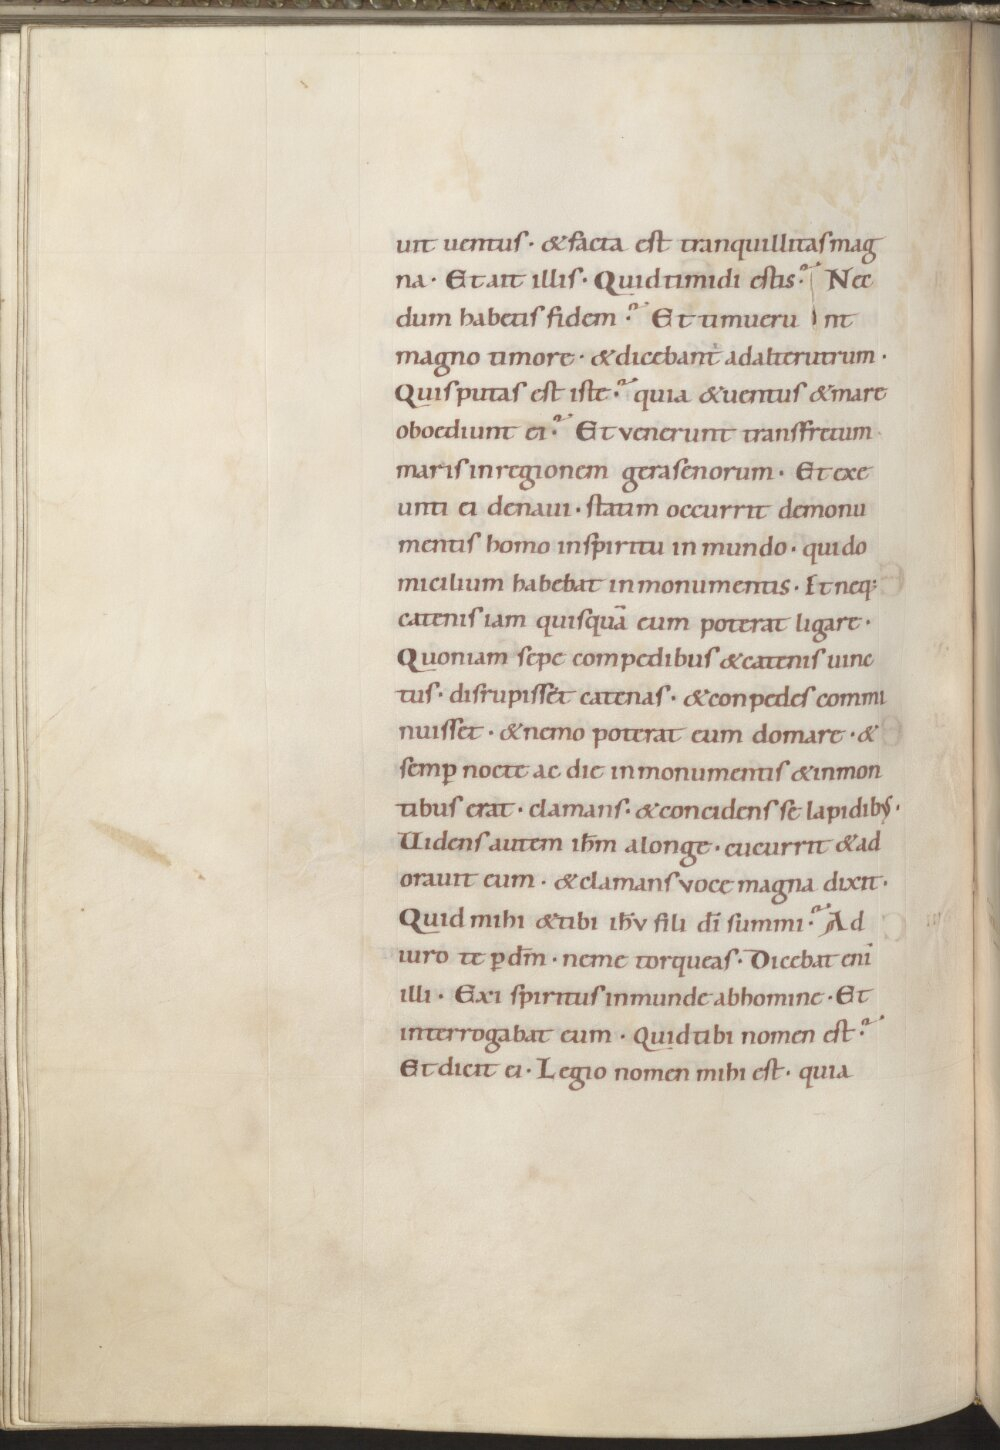 uit uentus · & facta est tranquillitas mag
na · Et ait illis · Quid timidi estis ? Nec
dum habetis fidem ? Et timueru nt
magno timore · & dicebant ad alterutrum ·
Quis putas est iste ? quia & uentus & mare
oboediunt ei ? Et venerunt transfretum
maris in regionem gerasenorum · Et exe
unti ei denaui · statim occurrit demonu
mentis homo in spiritu in mundo · qui do
micilium habebat in monumentis · Et neq;
catenis iam quisquā eum poterat ligare ·
Quoniam sepe compedibus & catenis uinc
tus · disrupisset catenas · & conpedes commi
nuisset · & nemo poterat eum domare · &
semp̄ nocte ac die in monumentis & in mon
tibus erat · clamans · & concidens se lapidibꝰ ·
Uidens autem ih̄m alonge · cucurrit & ad
orauit eum · & clamans voce magna dixit ·
Quid mihi & tibi ih̄v fili dī summi ? Ad
iuro te p dm̄ · ne me torqueas · Dicebat enī
illi · Exi spiritus inmunde ab homine · Et
interrogabat eum · Quid tibi nomen est ?
Et dicit ei · Legio nomen mihi est · quia